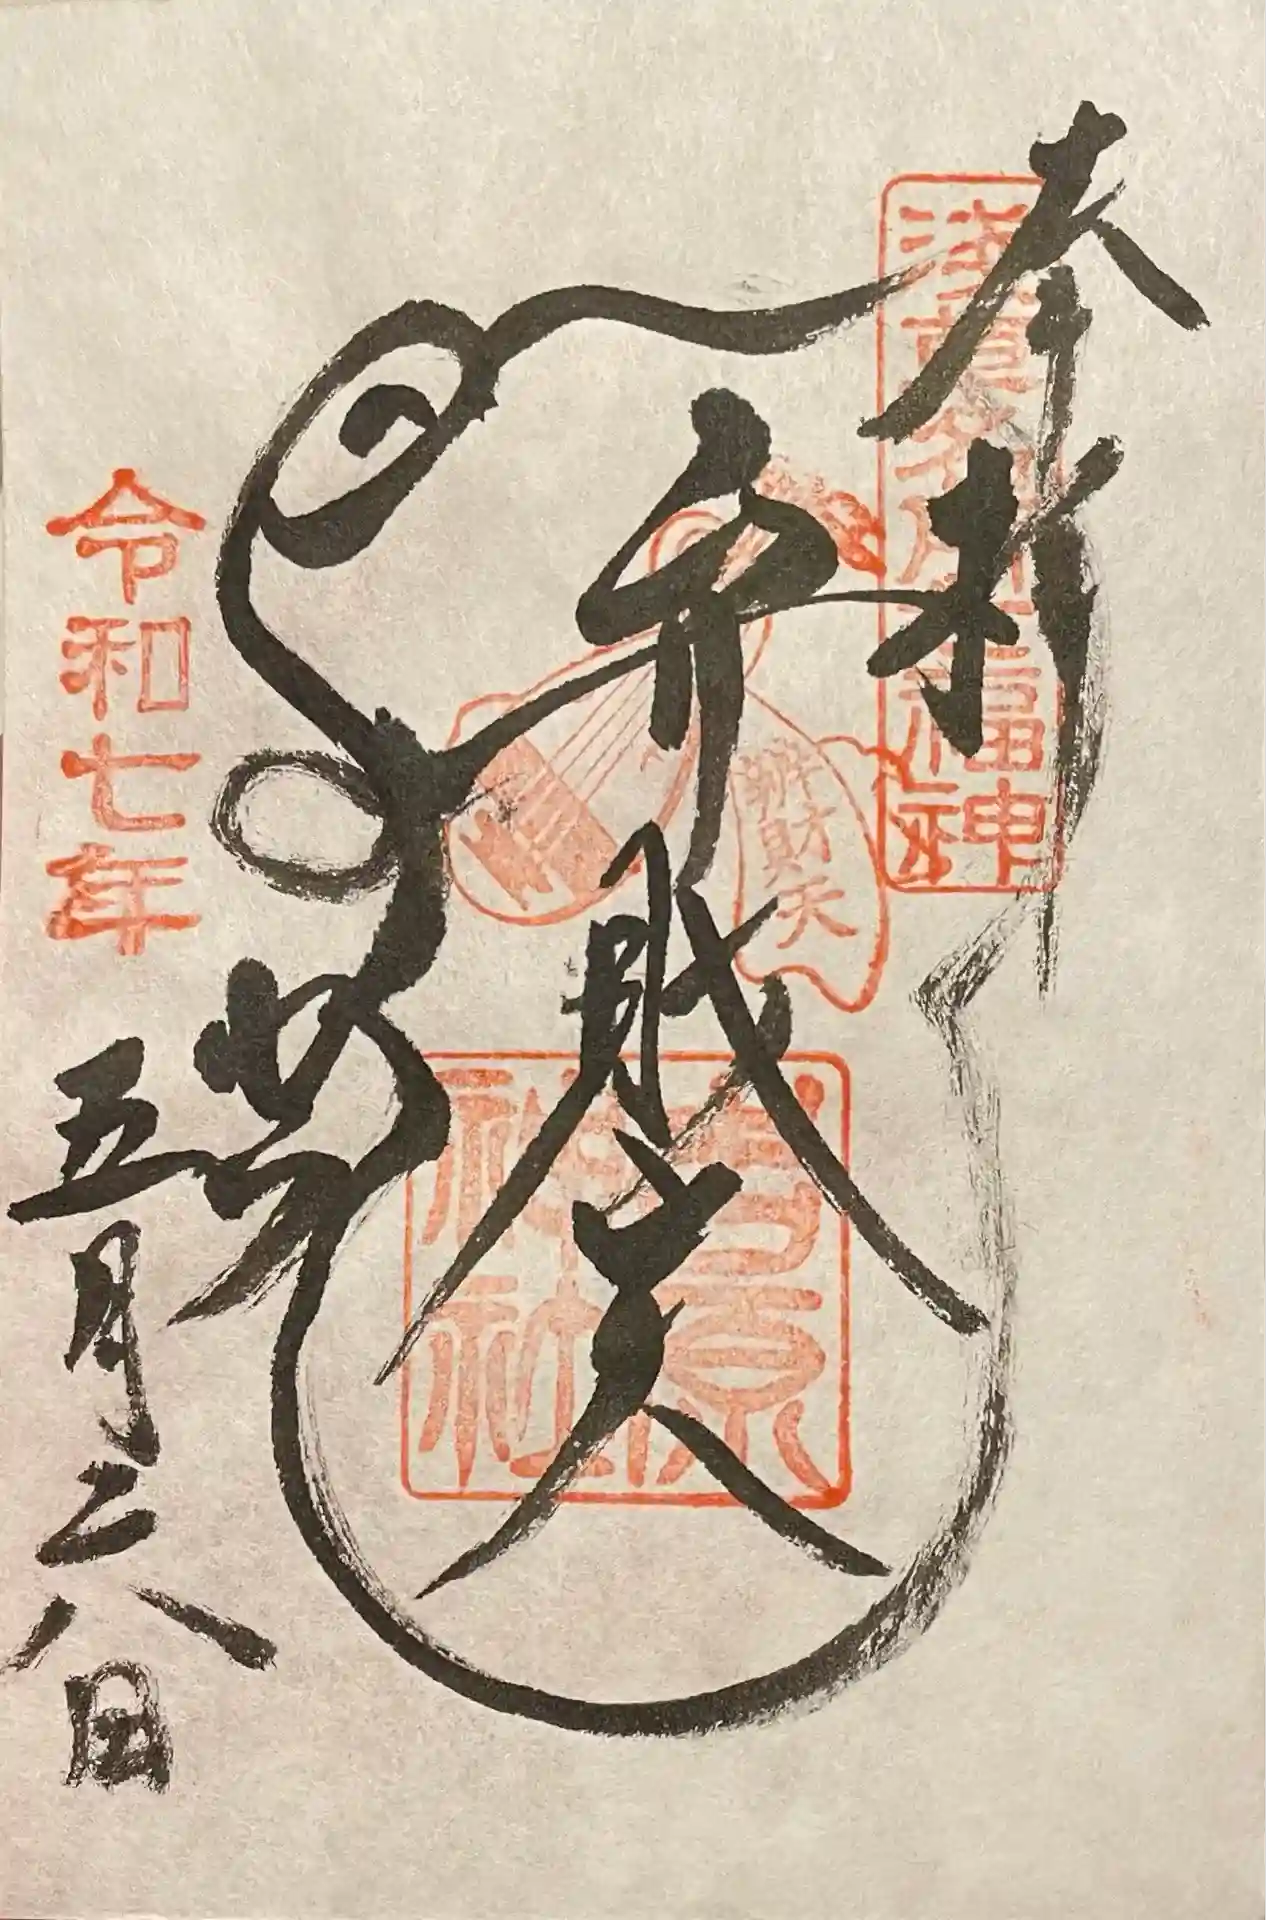 奉拝
浅草名所七福神
弁財天
辨財天
吉原
神社
令和七年
五月二八日